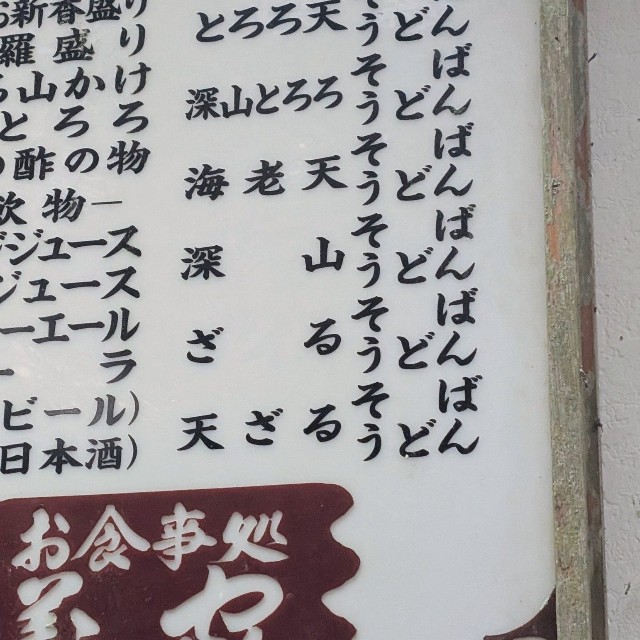 新香盛り
羅盛り
山かけ
とろろ
酢の物
飲物ー
ジュース
ジュース
ーエール
ーラ
ビール)
日本酒)
とろろ天 うどん
深山とろろ そば うどん
海老天 そば うどん
深山 そば うどん
ざる そば うどん
天ざる そば うどん
お食事処